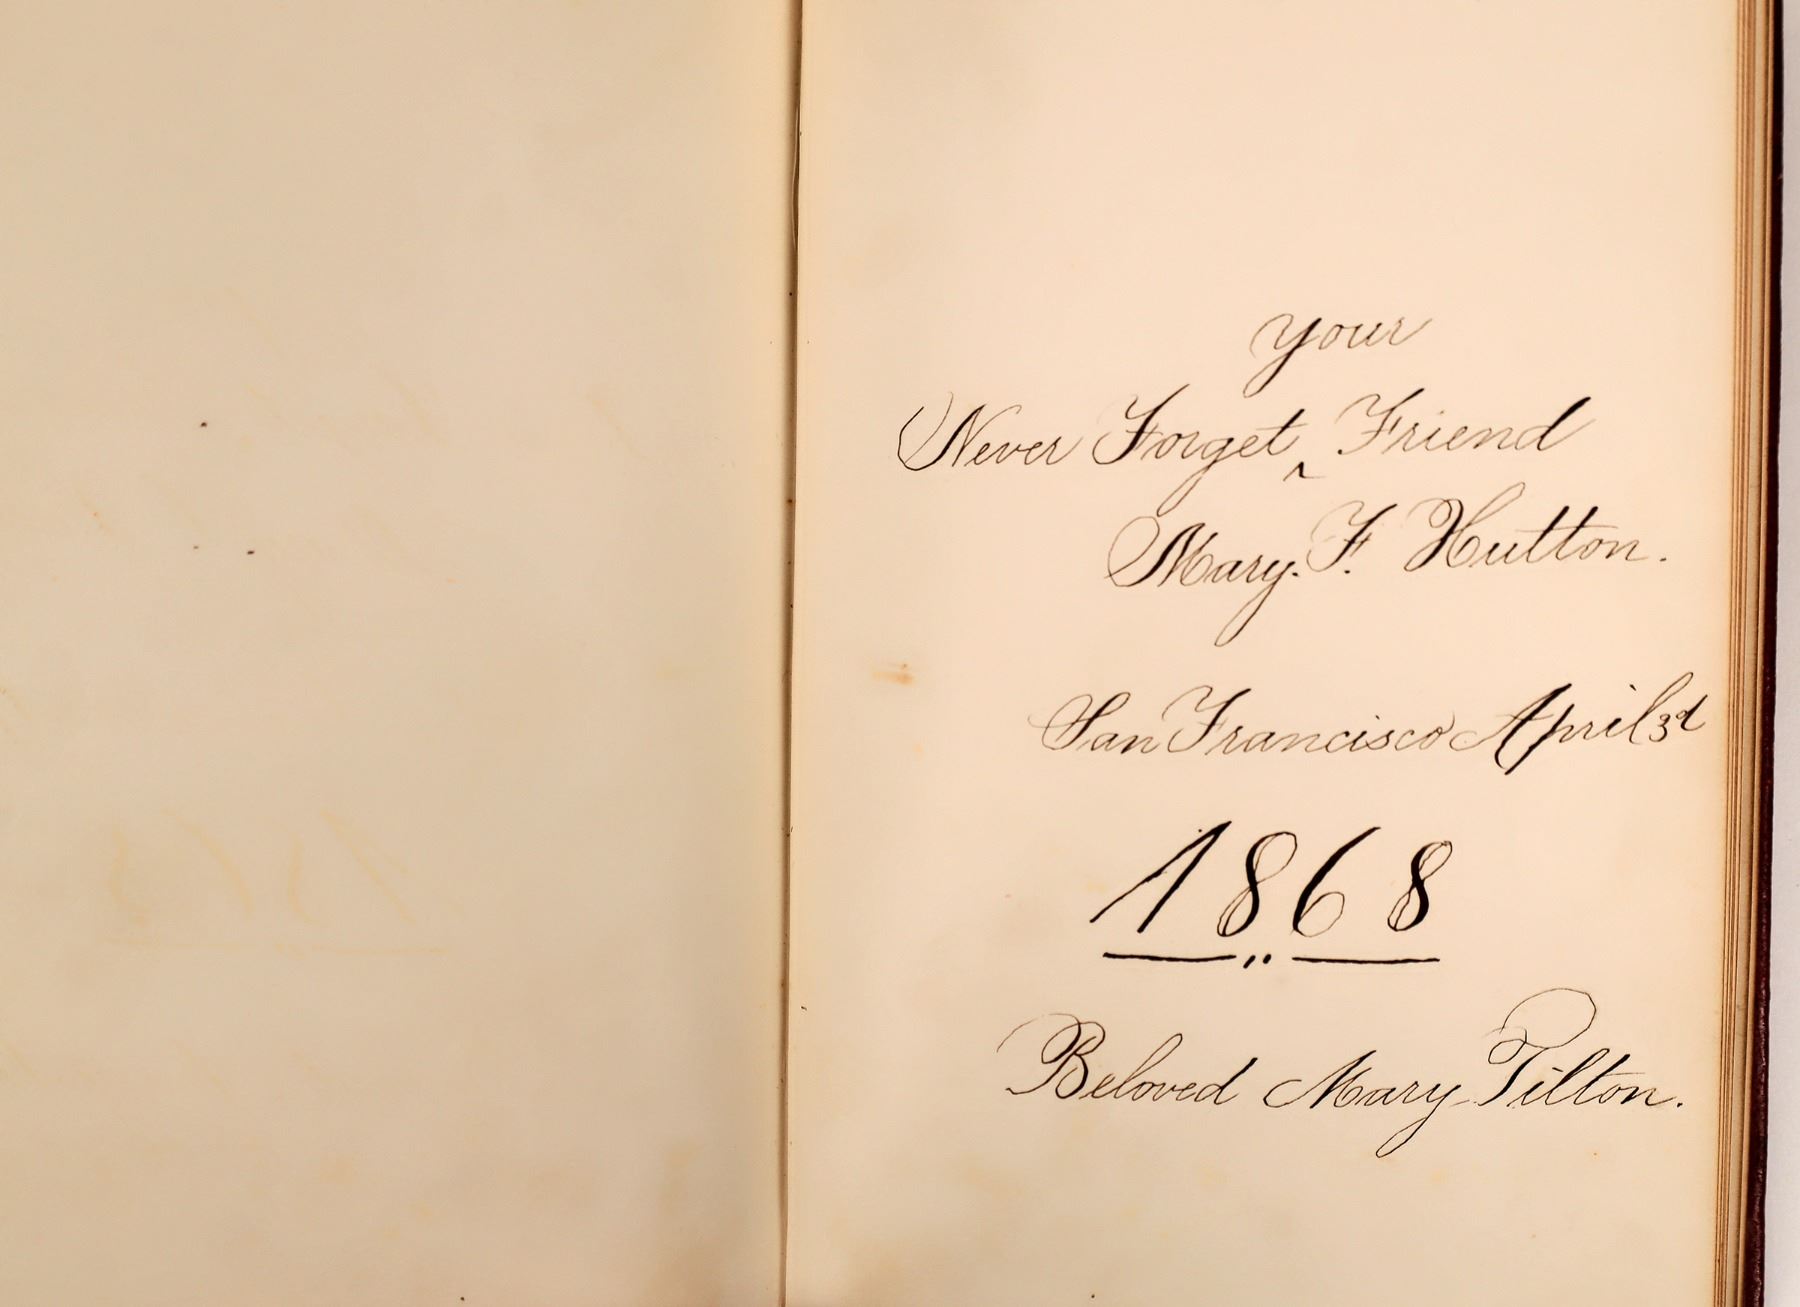 your
Never Forget ‸ Friend
Mary. F. Hutton.
San Francisco April 3d
1868
Beloved Mary Tilton.